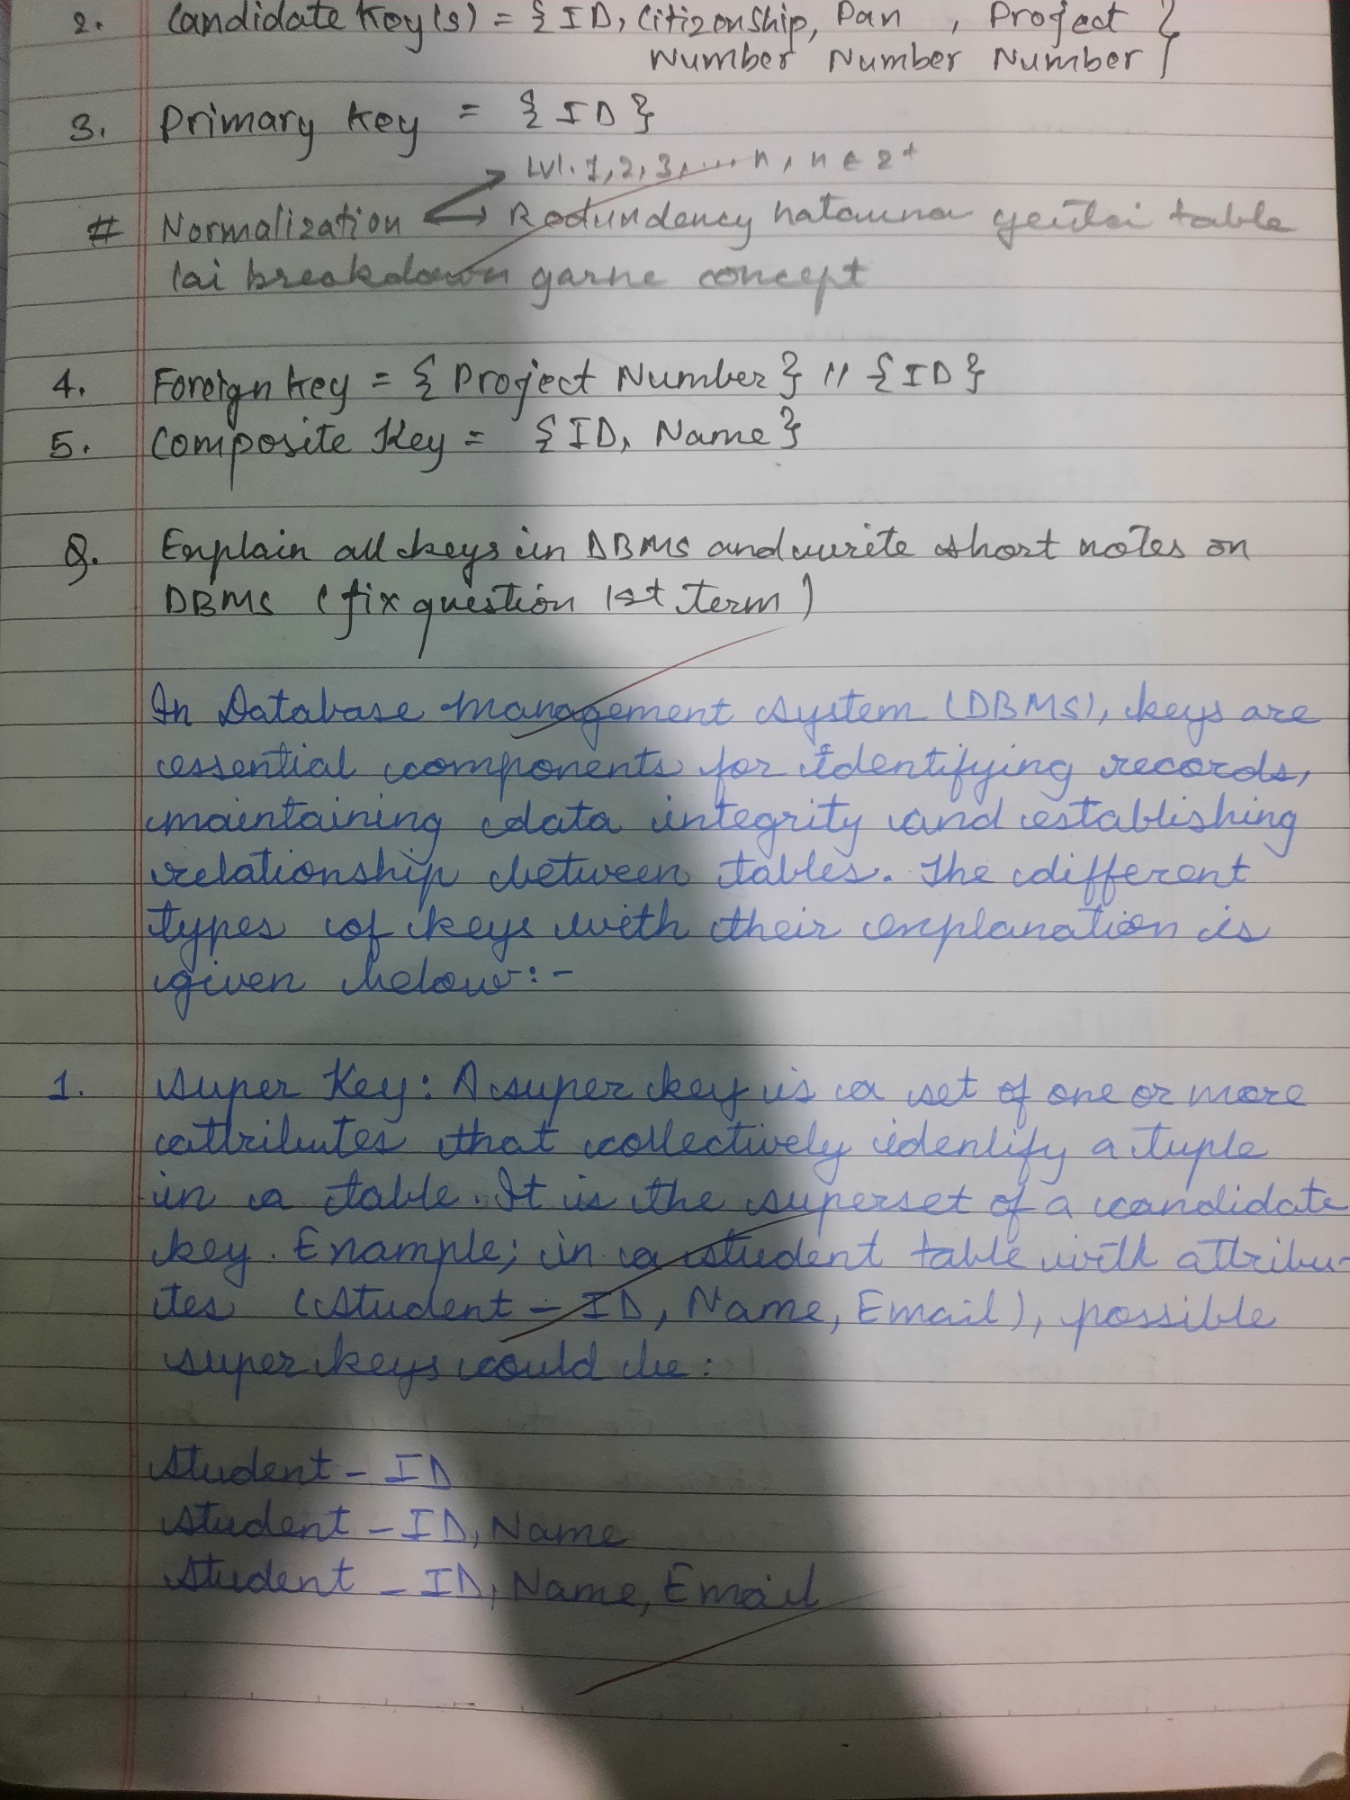 2. Candidate Key(s) = { ID, Citizenship, Pan , Project }
Number Number Number
3. Primary Key = { ID }
Lvl. 1, 2, 3, .... n, n ∈ z+
# Normalization → Redundency hatauna yeutai table
lai breakdown garne concept
4. Foreign Key = { Project Number } // { ID }
5. Composite Key = { ID, Name }
Q. Explain all keys in DBMS and write short notes on
DBMS (fix question 1st term)
In Database Management System (DBMS), keys are
essential components for identifying records,
maintaining data integrity and establishing
relationship between tables. The different
types of keys with their explanation is
given below:-
1. Super Key: A super key is a set of one or more
attributes that collectively identify a tuple
in a table. It is the superset of a candidate
key. Example; in a student table with attribu-
tes (Student - ID, Name, Email), possible
super keys could be:
Student - ID
Student - ID, Name
Student - ID, Name, Email